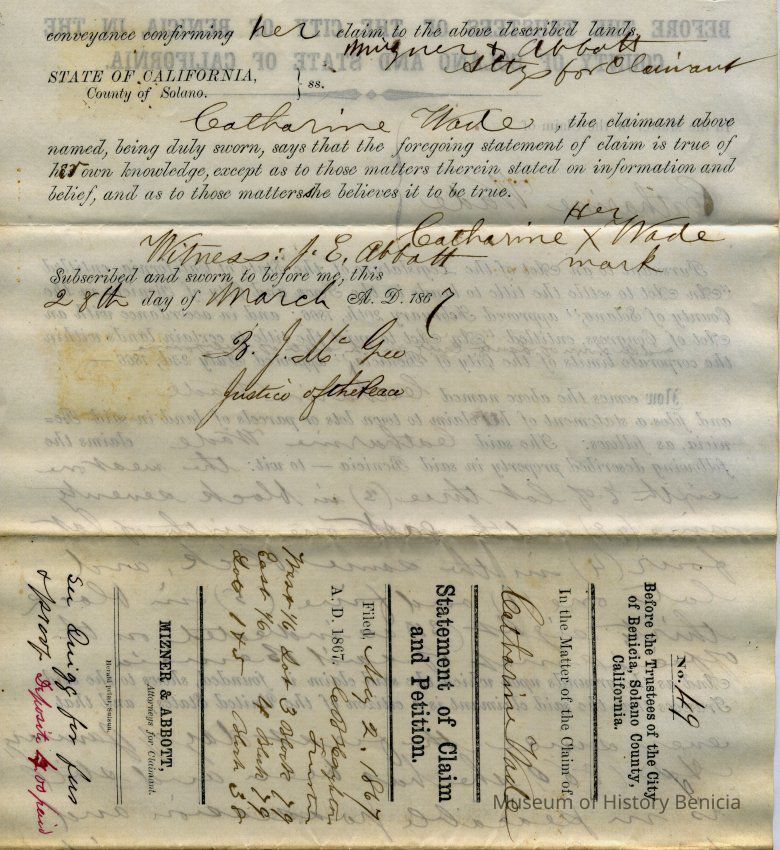 conveyance confirming her claim to the above described lands.
Mizner & Abbott
Attys for Claimant
STATE OF CALIFORNIA,
County of Solano. } ss.
Catharine Wade, the claimant above
named, being duly sworn, says that the foregoing statement of claim is true of
her own knowledge, except as to those matters therein stated on information and
belief, and as to those matters she believes it to be true.
Her
Witness: J. E. Abbott Catharine X Wade
mark
Subscribed and sworn to before me, this
28th day of March A. D. 1867
B. J. Mc Gee
Justice of the Peace
No. 49
Before the Trustees of the City
of Benicia, Solano County,
California.
In the Matter of the Claim of
Catharine Wade
Statement of Claim
and Petition.
Filed, May 2, 1867
A. D. 1867.
West 1/6 Lot 3 Block 79
East 1/6 " 4 Block 79
Lot 1 & 5 Block 39
MIZNER & ABBOTT,
Attorneys for Claimant.
Herald print, Suisun.
See Quigg for fees
& proof. Deposit 4,00 paid
Museum of History Benicia